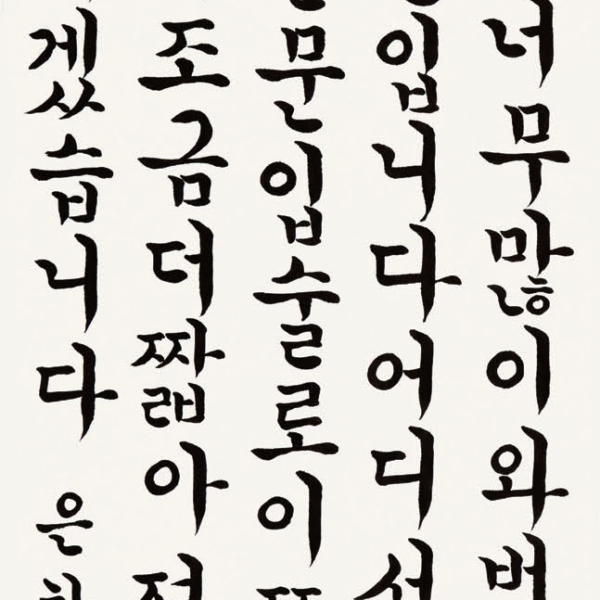 너무많이와버
입니다어디
문입술로이
조금더짧아
겠습니다 은